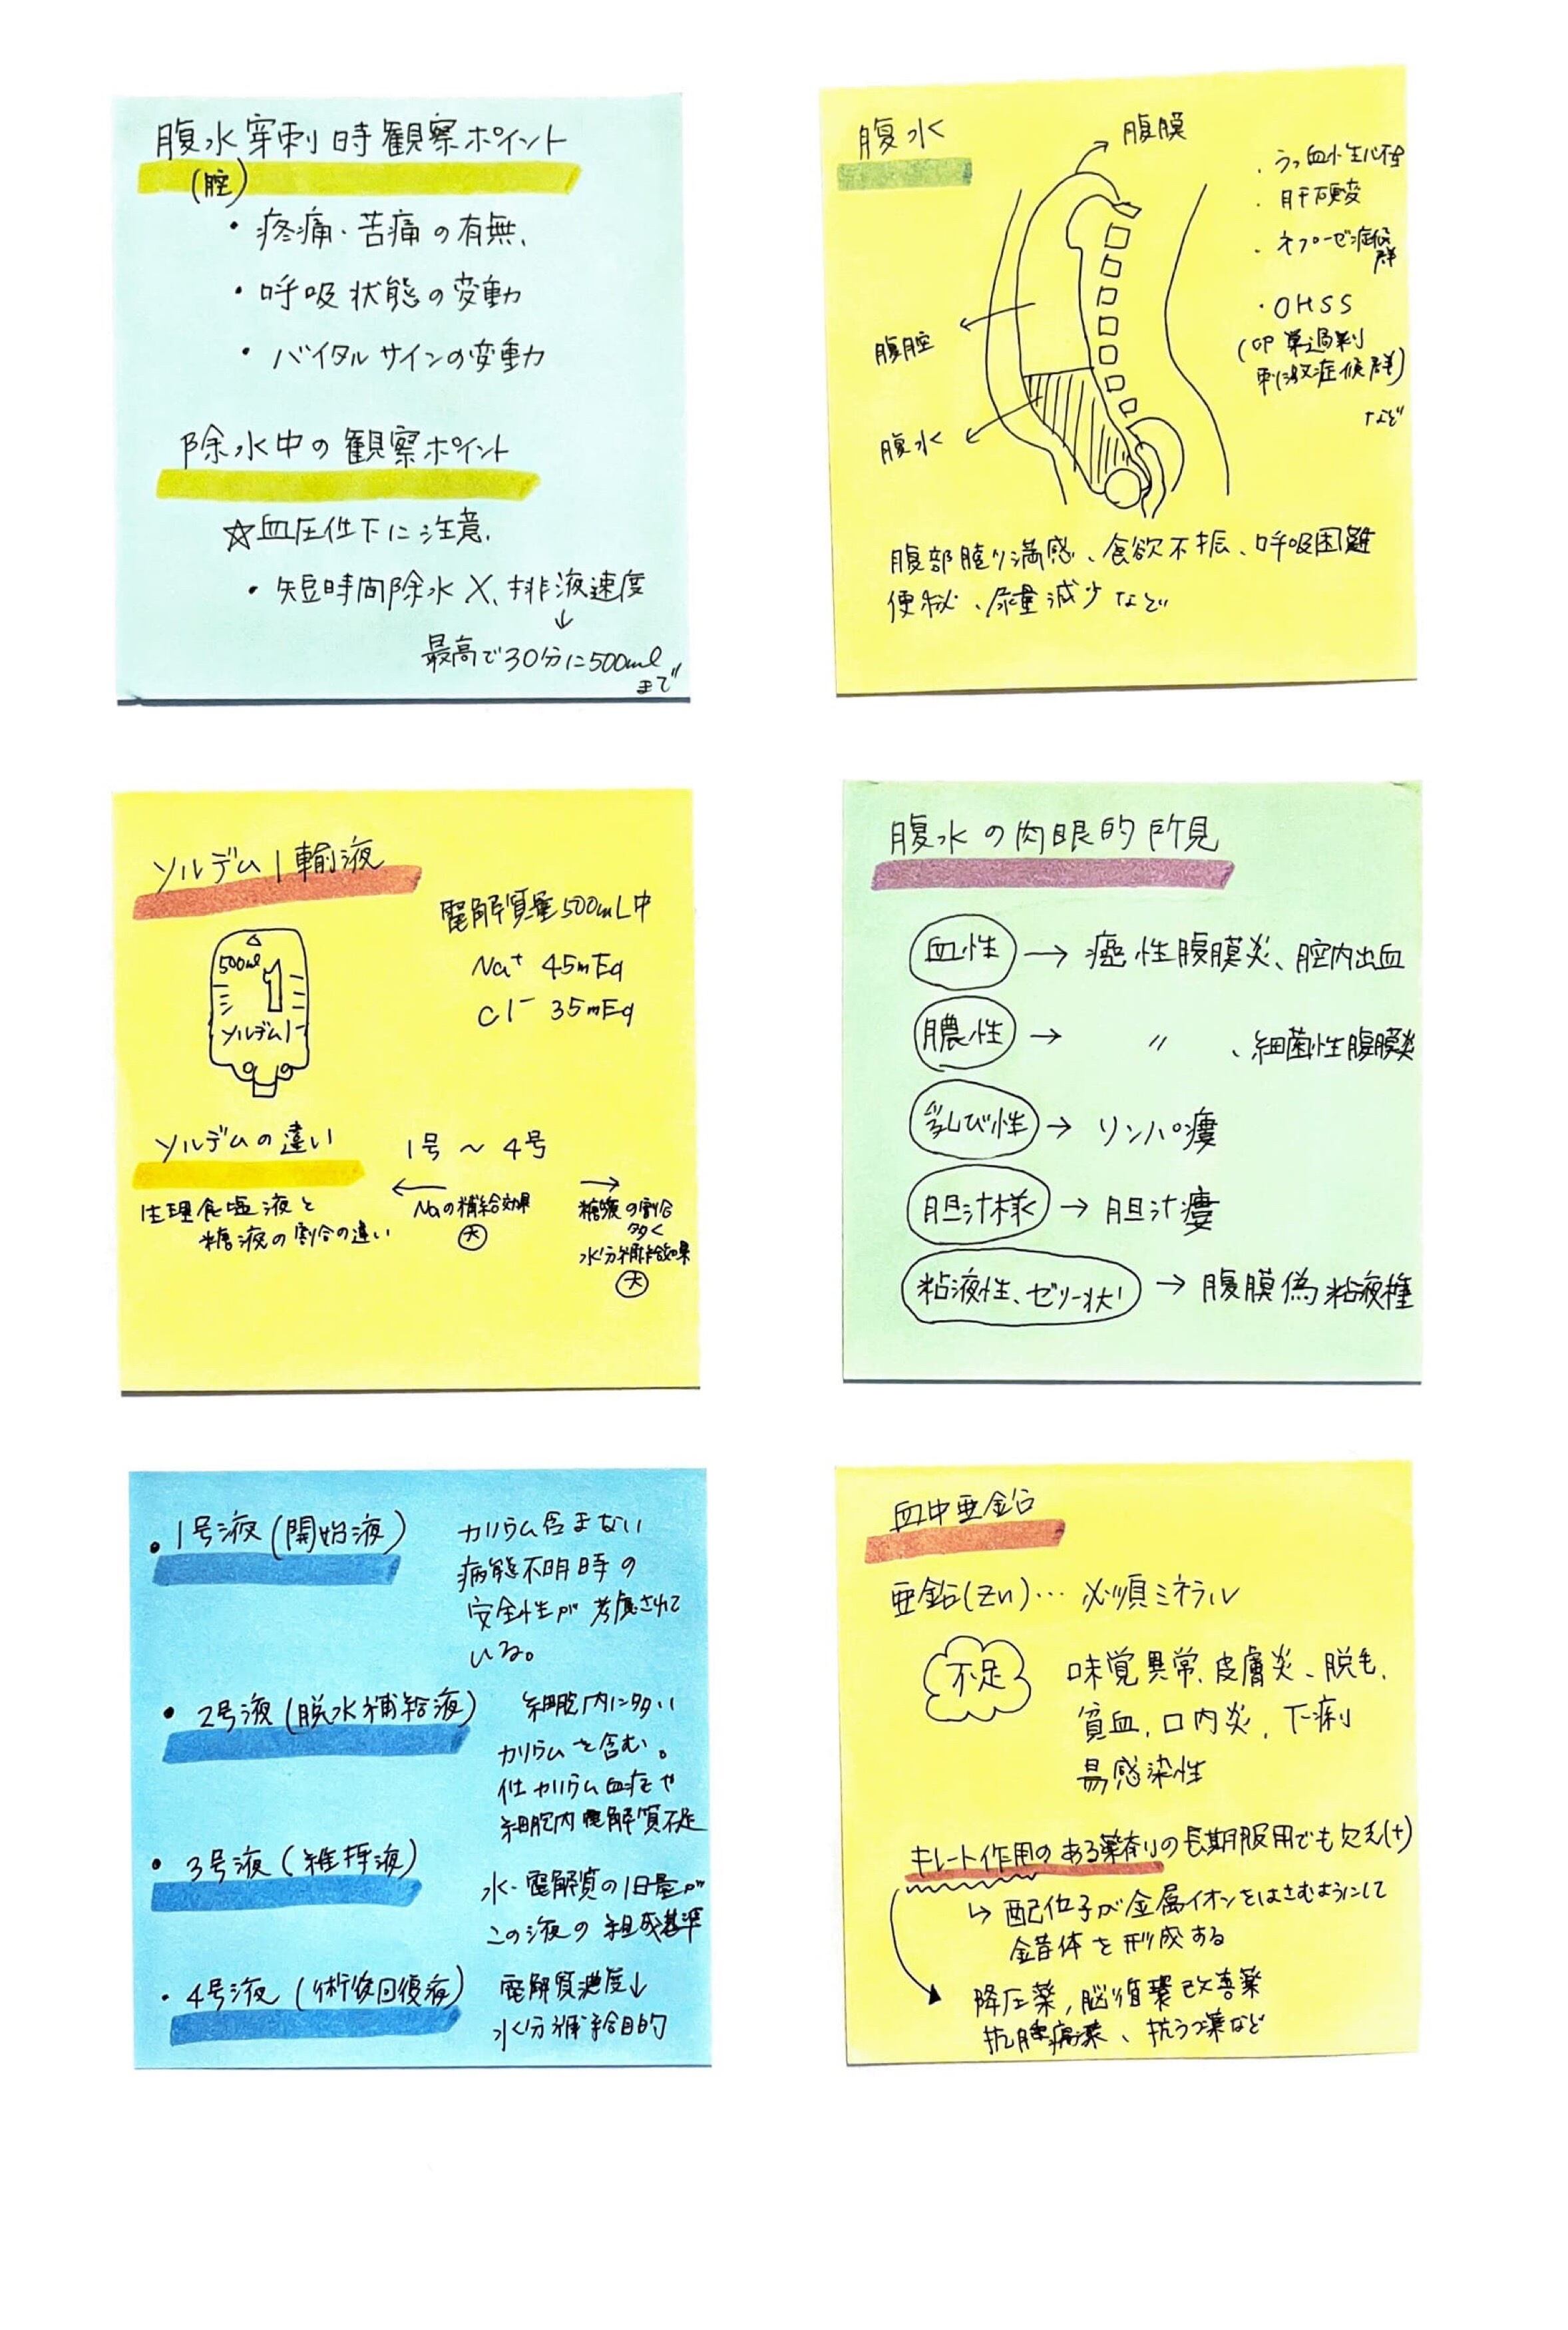 腹水穿刺時観察ポイント
(腔)
・疼痛・苦痛の有無、
・呼吸状態の変動
・バイタルサインの変動
除水中の観察ポイント
☆血圧低下に注意、
・短時間除水×、排液速度
↓
最高で30分に500mlまで
腹水
腹膜
腹腔
腹水
・うっ血性心不全
・肝硬変
・ネフローゼ症候群
・OHSS
(卵巣過剰
刺激症候群)
など
腹部膨満感、食欲不振、呼吸困難
便秘、尿量減少など
ソルデム1輸液
500ml
1
ソルデム1
電解質量500mL中
Na⁺ 45mEq
Cl⁻ 35mEq
ソルデムの違い
生理食塩液と
糖液の割合の違い
1号〜4号
←
Naの補給効果
大
→
糖液の割合
多く
水分補給効果
大
腹水の肉眼的所見
血性→癌性腹膜炎、腔内出血
膿性→〃、細菌性腹膜炎
乳び性→リンパ瘻
胆汁様→胆汁瘻
粘液性、ゼリー状→腹膜偽粘液種
・1号液(開始液)
カリウム含まない
病態不明時の
安全性が考慮されて
いる。
・2号液(脱水補給液)
細胞内に多い
カリウムを含む。
低カリウム血症や
細胞内電解質不足
・3号液(維持液)
水・電解質の1日量が
この液の組成基準
・4号液(術後回復液)
電解質濃度↓
水分補給目的
血中亜鉛
亜鉛(Zn)… 必須ミネラル
不足
味覚異常、皮膚炎、脱毛、
貧血、口内炎、下痢
易感染性
キレート作用のある薬剤の長期服用でも欠乏(+)
↳配位子が金属イオンをはさむようにして
錯体を形成する
降圧薬、脳循環改善薬
抗腫瘍薬、抗うつ薬など